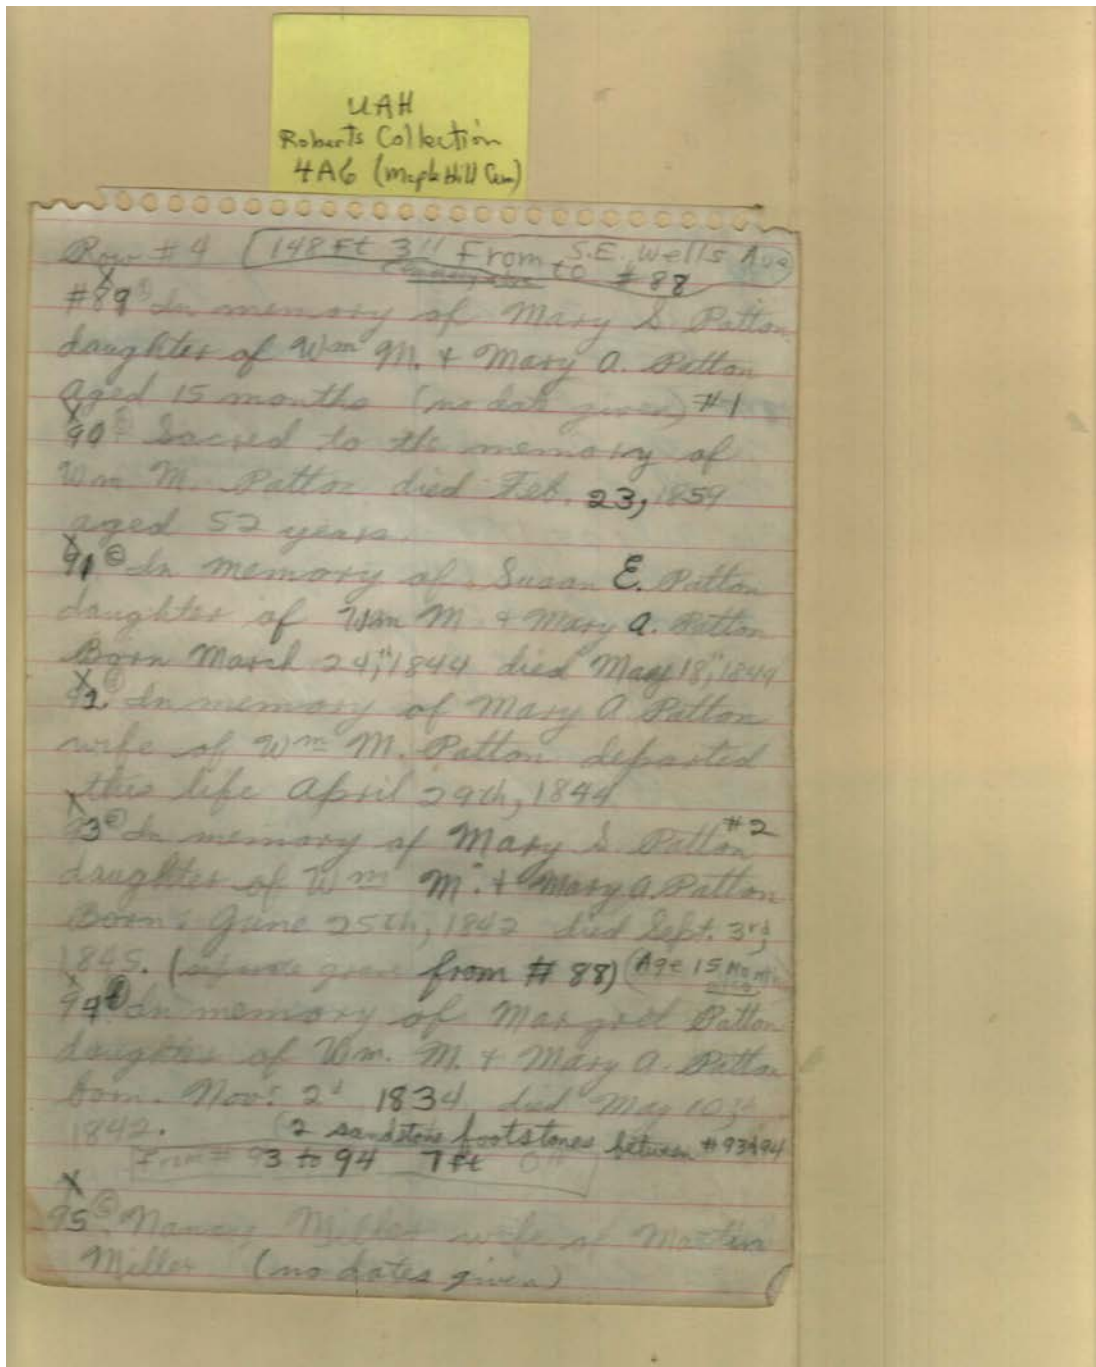 UAH
Roberts Collection
4A6 (Maple Hill Cem)
Row #4 148 Ft 3" From S.E. Wells Ave
to #88
X
#89 In memory of Mary S. Patton
daughter of Wm M. & Mary A. Patton
aged 15 months (no date given) #1
X
90 Sacred to the memory of
Wm M. Patton died Feb. 23, 1859
aged 52 years.
X
91 © In memory of Susan E. Patton
daughter of Wm M. & Mary A. Patton
Born March 24th, 1844 died May 18th, 1844
X
92 ⓓ In memory of Mary A Patton
wife of Wm M. Patton departed
this life April 29th, 1844
X
93 ⓔ In memory of Mary S. Patton #2
daughter of Wm M. & Mary A. Patton
Born: June 25th, 1842 died Sept. 3rd,
1845. (from #88) (Age 15 Months
X
94 In memory of Margret Patton
daughter of Wm. M. & Mary A. Patton
born. Nov: 2d 1834 died May
1842. (2 sandstone footstones between #93&94
From #93 to 94 7 ft
X
95 Nancy Miller wife of Martin
Miller (no dates given)